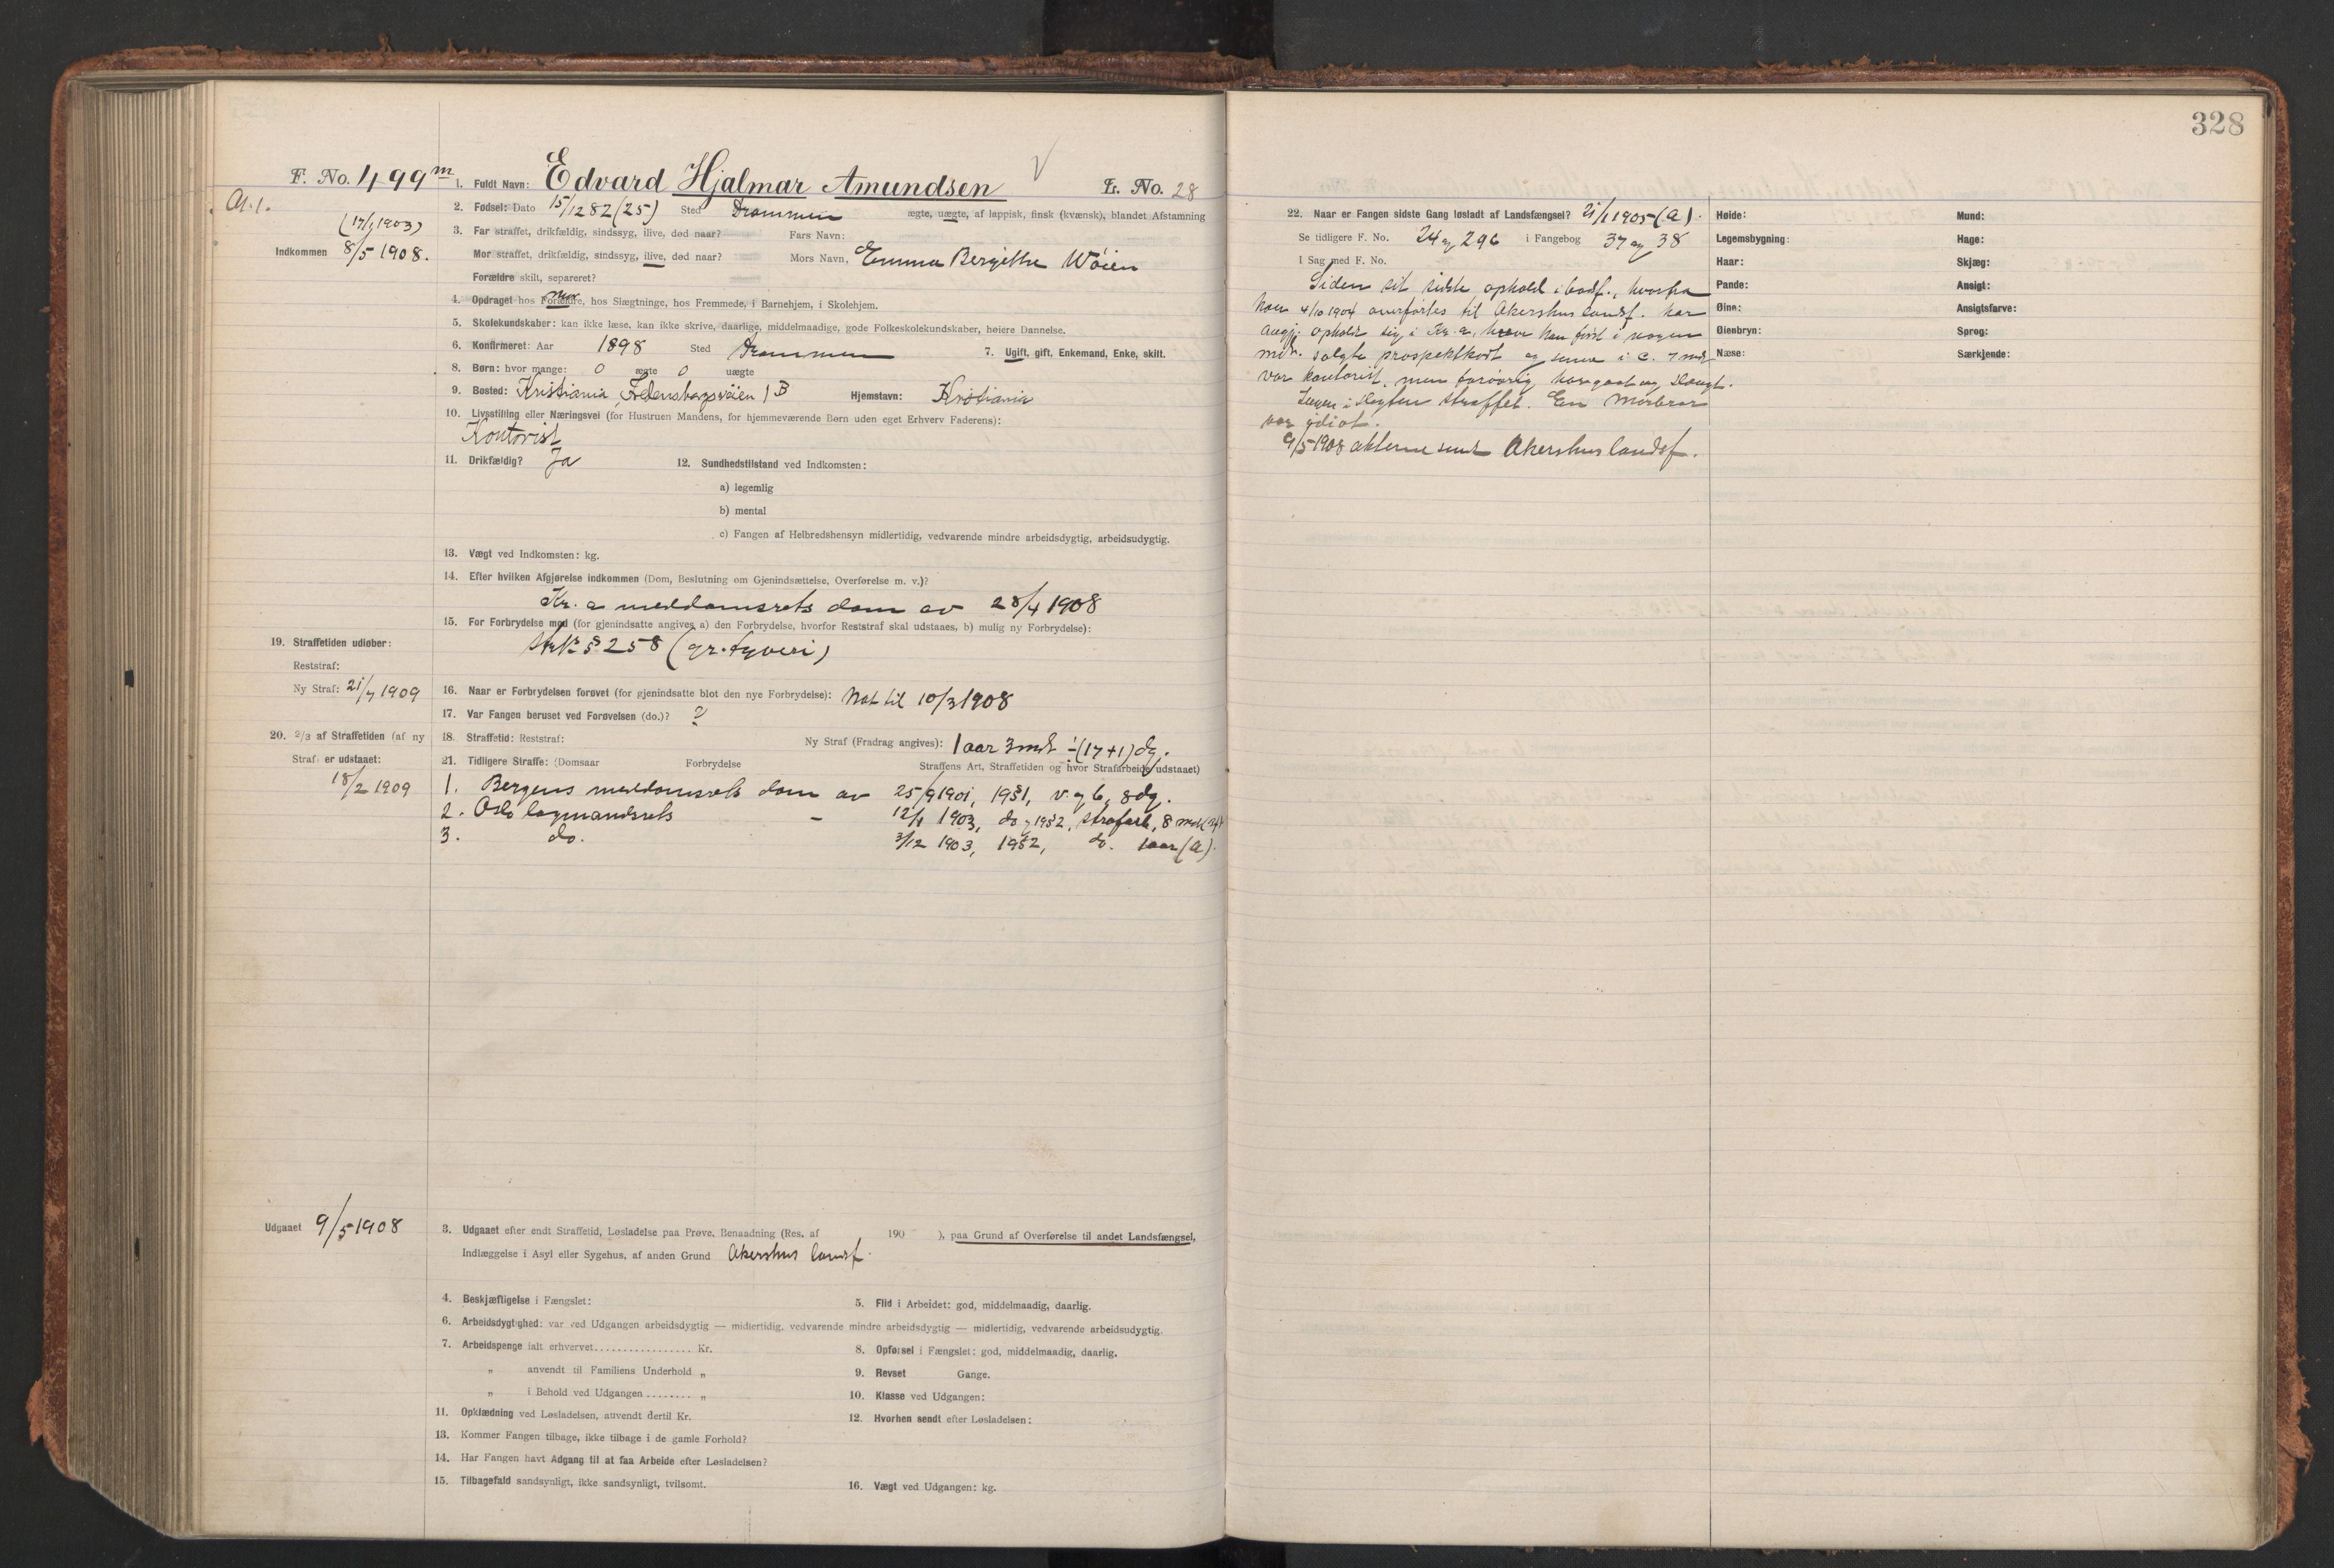 328
F. No. 499 m
1. Fuldt Navn: Edvard Hjalmar Amundsen
L. No. 28
2. Fødsel: Dato 15/12 82 (25) Sted Drammen ægte, uægte, af lappisk, finsk (kvænsk), blandet Afstamning
(17/1 1903)
3. Far straffet, drikfældig, sindssyg, ilive, død naar? Fars Navn:
Indkommen 8/5 1908.
Mor straffet, drikfældig, sindssyg, ilive, død naar? Mors Navn, Emma Bergithe Wøien
Forældre skilt, separeret?
4. Opdraget hos Forældre, hos Slægtninge, hos Fremmede, i Barnehjem, i Skolehjem.
Mor
5. Skolekundskaber: kan ikke læse, kan ikke skrive, daarlige, middelmaadige, gode Folkeskolekundskaber, høiere Dannelse.
6. Konfirmeret: Aar 1898 Sted Drammen 7. Ugift, gift, Enkemand, Enke, skilt.
8. Børn: hvor mange: 0 ægte 0 uægte
9. Bosted: Kristiania, Fredensborgveien 1 B Hjemstavn: Kristiania
10. Livsstilling eller Næringsvei (for Hustruen Mandens, for hjemmeværende Børn uden eget Erhverv Faderens):
Kontorist
11. Drikfældig? Ja 12. Sundhedstilstand ved Indkomsten:
a) legemlig
b) mental
c) Fangen af Helbredshensyn midlertidig, vedvarende mindre arbeidsdygtig, arbeidsudygtig.
13. Vægt ved Indkomsten: kg.
14. Efter hvilken Afgjørelse indkommen (Dom, Beslutning om Gjenindsættelse, Overførelse m. v.)?
Kr. a meddomsrets dom av 28/4 1908
15. For Forbrydelse mod (for gjenindsatte angives a) den Forbrydelse, hvorfor Reststraf skal udstaaes, b) mulig ny Forbrydelse):
§ 258 (gr. tyveri)
19. Straffetiden udløber:
Reststraf:
Ny Straf: 21/7 1909
16. Naar er Forbrydelsen forøvet (for gjenindsatte blot den nye Forbrydelse): Nat til 10/3 1908
17. Var Fangen beruset ved Forøvelsen (do.)? ?
20. 2/3 af Straffetiden (af ny
Straf) er udstaaet:
18/2 1909
18. Straffetid: Reststraf: Ny Straf (Fradrag angives): 1 aar 3 mdr ÷ (17+1) dg.
21. Tidligere Straffe: (Domsaar Forbrydelse Straffens Art, Straffetiden og hvor Strafarbeide udstaaet)
1. Bergens meddomsrets dom av 25/9 1901, 19§1, v. og b, 8 dg.
2. Oslo lagmandsrets – 12/1 1903, do, 19§2, strafarb, 8 mdr
3. do. 3/12 1903, 19§2, do. 1 aar (A).
Udgaaet 9/5 1908
3. Udgaaet efter endt Straffetid, Løsladelse paa Prøve, Benaadning (Res. af 190 ), paa Grund af Overførelse til andet Landsfængsel,
Indlæggelse i Asyl eller Sygehus, af anden Grund Akershus landsf.
4. Beskjæftigelse i Fængslet: 5. Flid i Arbeidet: god, middelmaadig, daarlig.
6. Arbeidsdygtighed: var ved Udgangen arbeidsdygtig — midlertidig, vedvarende mindre arbeidsdygtig — midlertidig, vedvarende arbeidsudygtig.
7. Arbeidspenge ialt erhvervet................. Kr. 8. Opførsel i Fængslet: god, middelmaadig, daarlig.
„ anvendt til Familiens Underhold „ 9. Revset Gange.
„ i Behold ved Udgangen ........ „ 10. Klasse ved Udgangen:
11. Opklædning ved Løsladelsen, anvendt dertil Kr. 12. Hvorhen sendt efter Løsladelsen:
13. Kommer Fangen tilbage, ikke tilbage i de gamle Forhold?
14. Har Fangen havt Adgang til at faa Arbeide efter Løsladelsen?
15. Tilbagefald sandsynligt, ikke sandsynligt, tvilsomt. 16. Vægt ved Udgangen: kg.
22. Naar er Fangen sidste Gang løsladt af Landsfængsel? 21/1 1905 (A).
Se tidligere F. No. 24 og 296 i Fangebog 37 og 38
I Sag med F. No.
Siden sit sidste ophold i bodsf., hvorfra
han 4/10 1904 overførtes til Akershus landsf. har
opholdt sig i Kr. a, hvor han først i nogen
mdr. solgte prospektkort og senere i c. 7 mdr
var kontorist, men forøvrig har gaat og slængt.
Ingen i slegten straffet. En morbror
var idiot.
9/5 1908 akterne sendt Akershus landsf.
Høide: Mund:
Legemsbygning: Hage:
Haar: Skjæg:
Pande: Ansigt:
Øine: Ansigtsfarve:
Øienbryn: Sprog:
Næse: Særkjende: